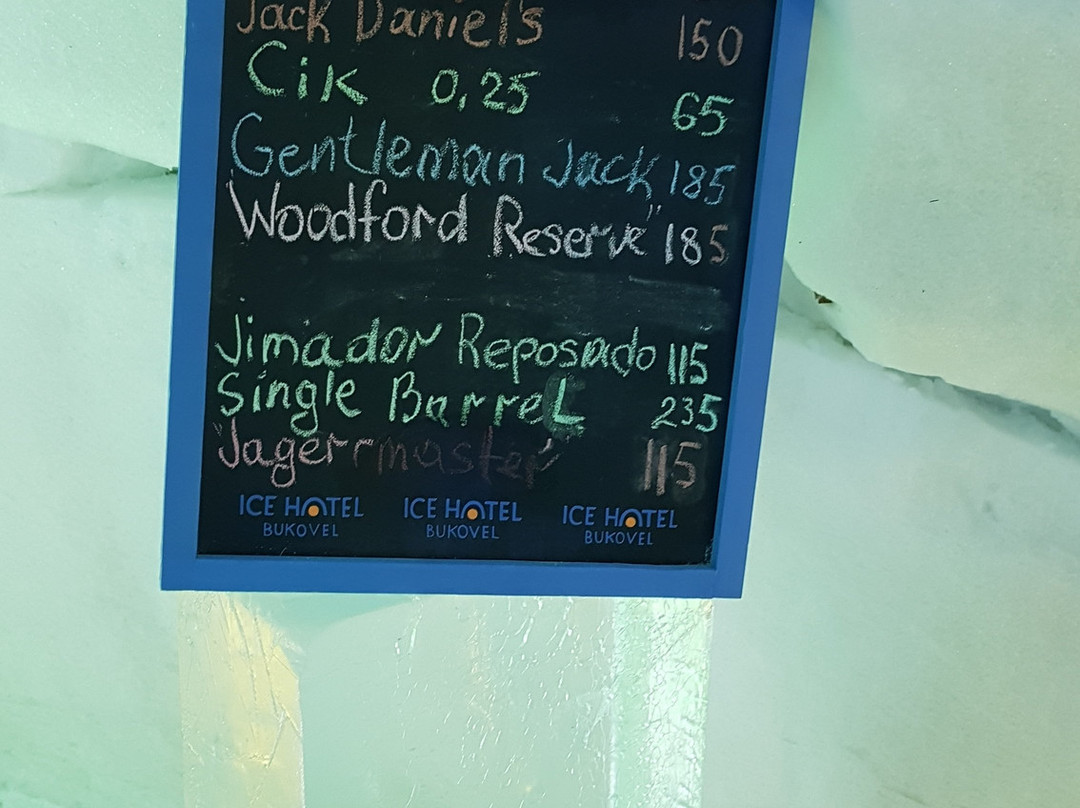 Jack Daniel's 150
Сік 0,25 65
Gentleman Jack 185
Woodford Reserve" 185
Jimador Reposado 115
Single Barrel 235
"Jagermaster" 115
ICE HOTEL BUKOVEL ICE HOTEL BUKOVEL ICE HOTEL BUKOVEL